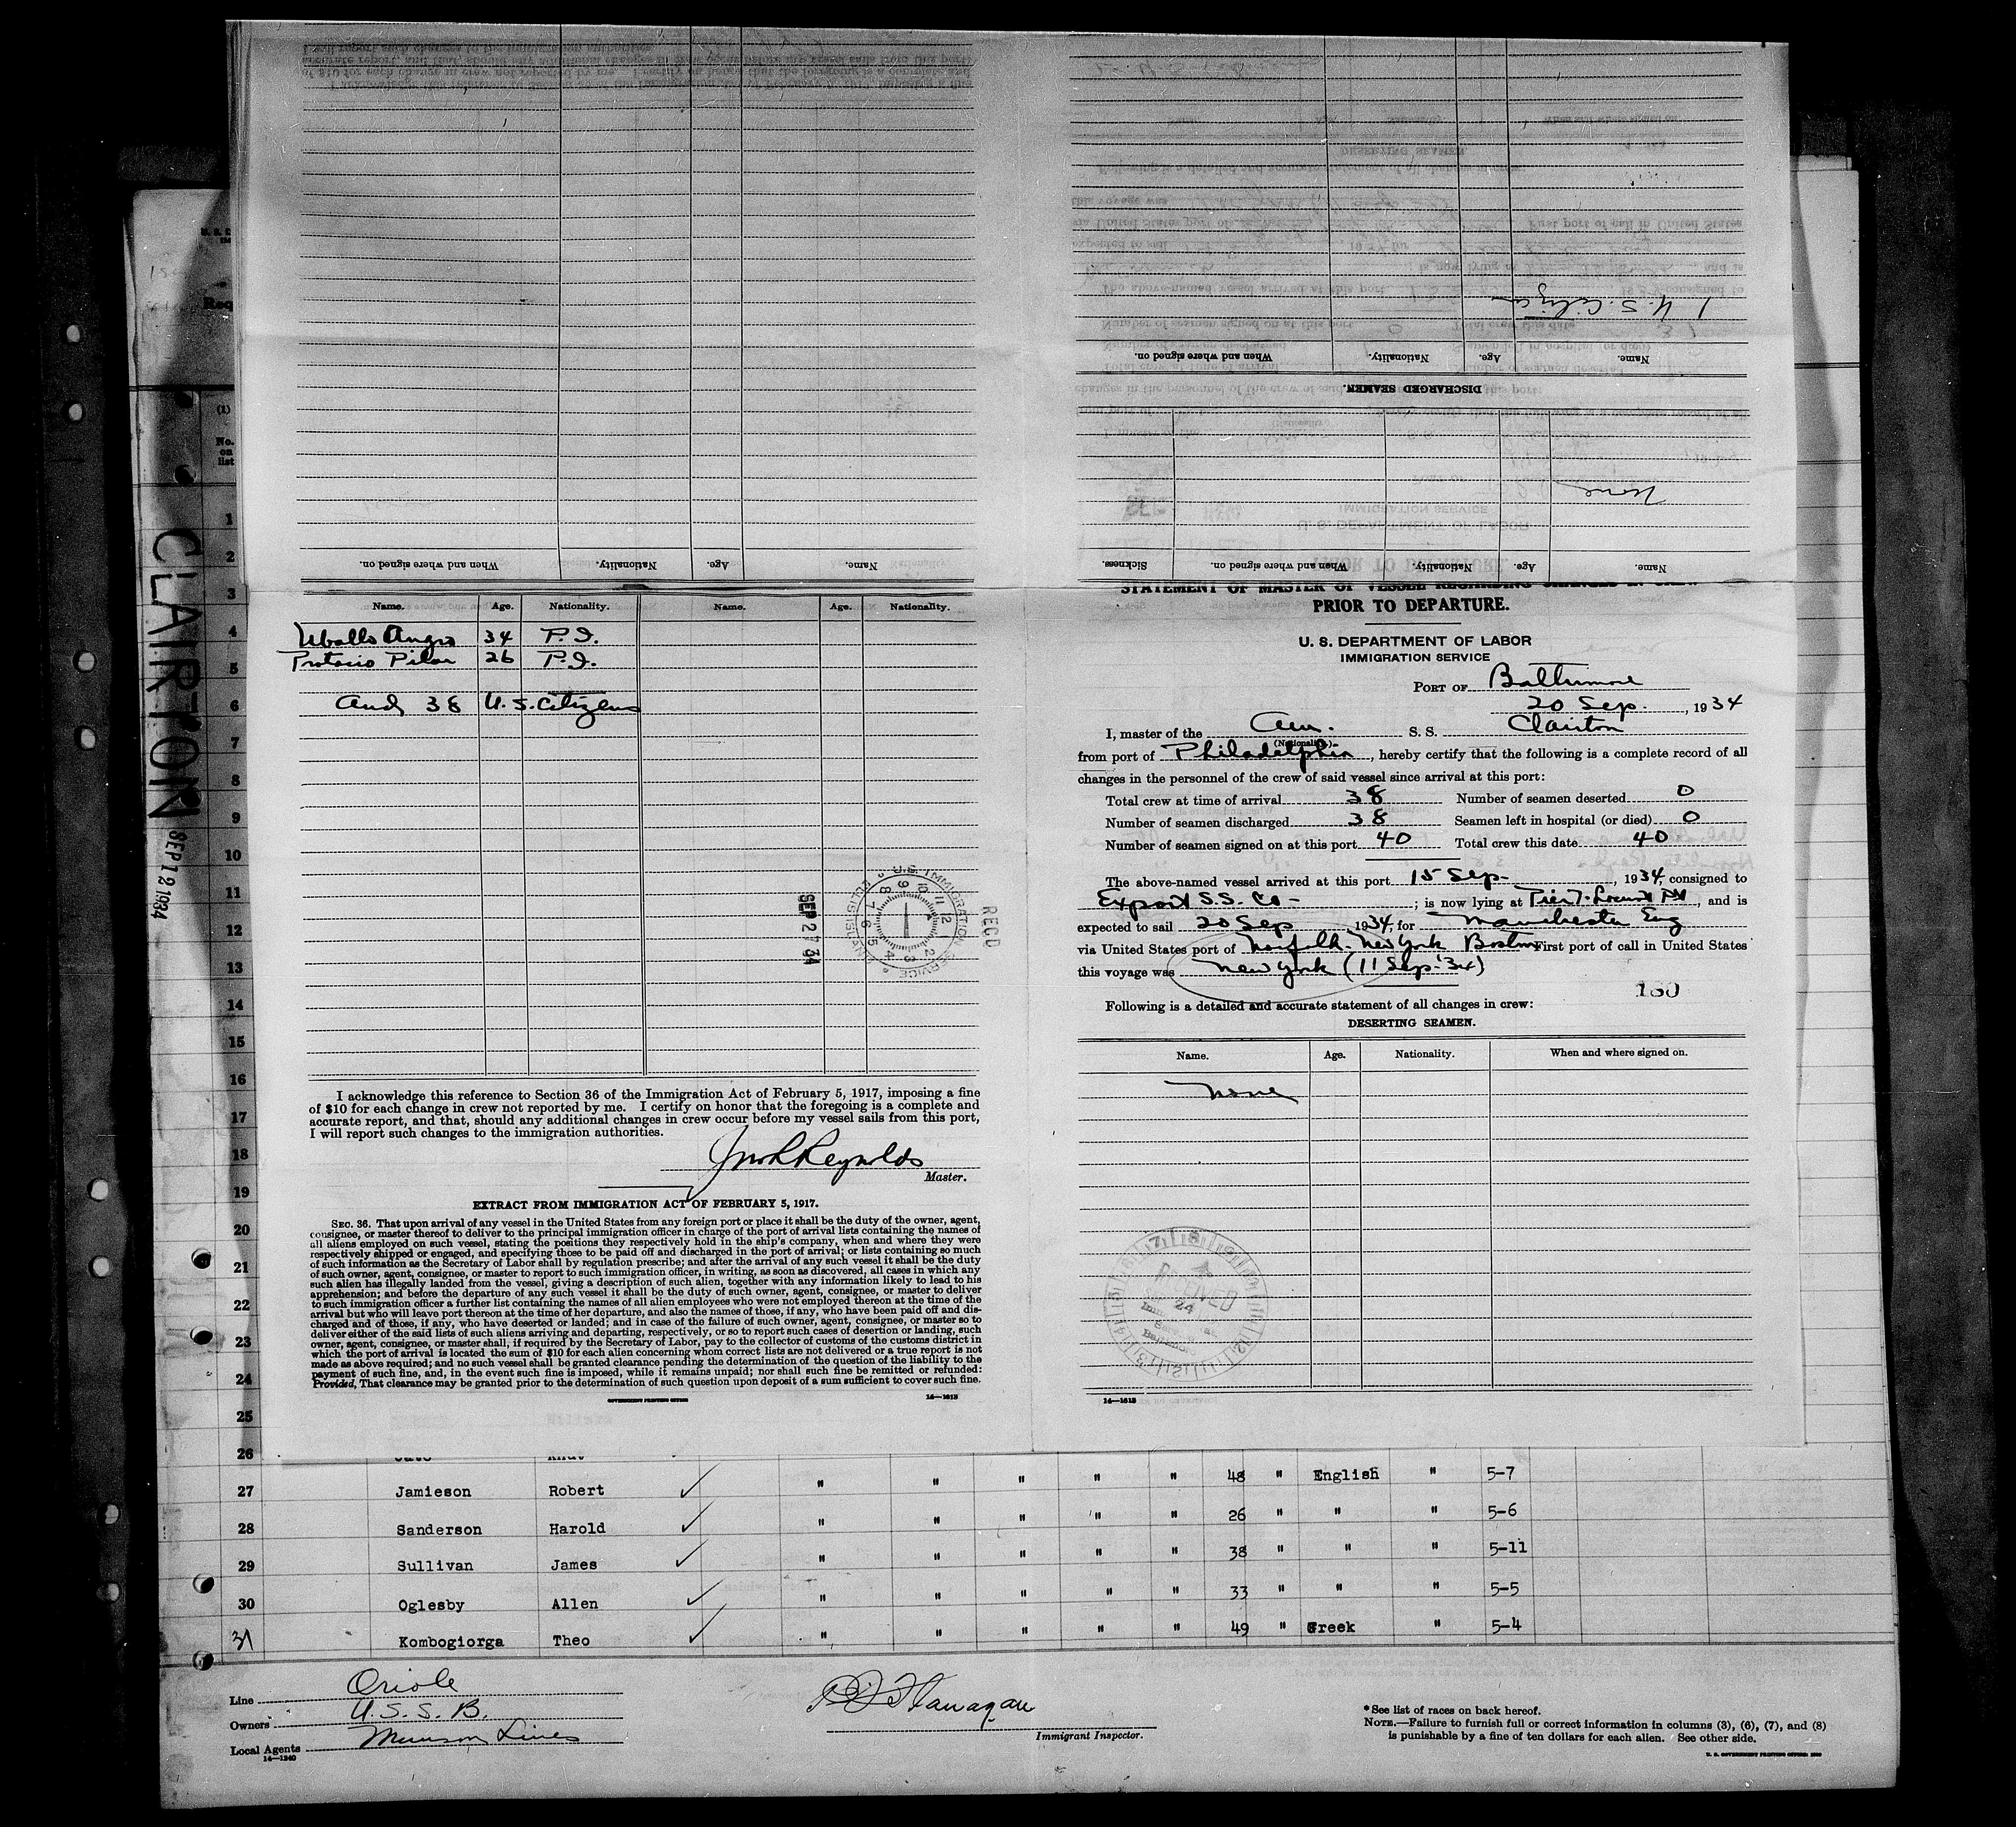 CLAIRTON SEP 12 1934
(1)
No.
on
list
1
2
3
4
5
6
7
8
9
10
11
12
13
14
15
16
17
18
19
20
21
22
23
24
25
26
When and where signed on.
Nationality.
Age.
Name.
1 U. S. Citizen
Name.
Age.
Nationality.
When and where signed on.
DISCHARGED SEAMEN.
None
Name.
Age.
Nationality.
When and where signed on.
Sickness.
Name. Age. Nationality. Name. Age. Nationality.
Angro 34 P.I.
Protacio Pilar 26 P.I.
and 38 U.S. Citizens
RECD
U.S. IMMIGRATION SERVICE
SEP 27 34
I acknowledge this reference to Section 36 of the Immigration Act of February 5, 1917, imposing a fine
of $10 for each change in crew not reported by me. I certify on honor that the foregoing is a complete and
accurate report, and that, should any additional changes in crew occur before my vessel sails from this port,
I will report such changes to the immigration authorities.
Jno R Reynolds
Master.
EXTRACT FROM IMMIGRATION ACT OF FEBRUARY 5, 1917.
SEC. 36. That upon arrival of any vessel in the United States from any foreign port or place it shall be the duty of the owner, agent,
consignee, or master thereof to deliver to the principal immigration officer in charge of the port of arrival lists containing the names of
all aliens employed on such vessel, stating the positions they respectively hold in the ship's company, when and where they were
respectively shipped or engaged, and specifying those to be paid off and discharged in the port of arrival; or lists containing so much
of such information as the Secretary of Labor shall by regulation prescribe; and after the arrival of any such vessel it shall be the duty
of such owner, agent, consignee, or master to report to such immigration officer, in writing, as soon as discovered, all cases in which any
such alien has illegally landed from the vessel, giving a description of such alien, together with any information likely to lead to his
apprehension; and before the departure of any such vessel it shall be the duty of such owner, agent, consignee, or master to deliver
to such immigration officer a further list containing the names of all alien employees who were not employed thereon at the time of the
arrival but who will leave port thereon at the time of her departure, and also the names of those, if any, who have been paid off and dis-
charged and of those, if any, who have deserted or landed; and in case of the failure of such owner, agent, consignee, or master so to
deliver either of the said lists of such aliens arriving and departing, respectively, or so to report such cases of desertion or landing, such
owner, agent, consignee, or master shall, if required by the Secretary of Labor, pay to the collector of customs of the customs district in
which the port of arrival is located the sum of $10 for each alien concerning whom correct lists are not delivered or a true report is not
made as above required; and no such vessel shall be granted clearance pending the determination of the question of the liability to the
payment of such fine, and, in the event such fine is imposed, while it remains unpaid; nor shall such fine be remitted or refunded:
Provided, That clearance may be granted prior to the determination of such question upon deposit of a sum sufficient to cover such fine.
GOVERNMENT PRINTING OFFICE 14—1613
STATEMENT OF MASTER OF VESSEL REGARDING CHANGES IN CREW
PRIOR TO DEPARTURE.
U. S. DEPARTMENT OF LABOR
IMMIGRATION SERVICE
PORT OF Baltimore
20 Sep. , 1934
I, master of the Am. S. S. Clairton
(Nationality)
from port of Philadelphia, hereby certify that the following is a complete record of all
changes in the personnel of the crew of said vessel since arrival at this port:
Total crew at time of arrival 38 Number of seamen deserted 0
Number of seamen discharged 38 Seamen left in hospital (or died) 0
Number of seamen signed on at this port 40 Total crew this date 40
The above-named vessel arrived at this port 15 Sep. , 1934, consigned to
Export S.S. Co - ; is now lying at Pier 7. Locust Pt , and is
expected to sail 20 Sep , 1934, for Manchester Eng
via United States port of Norfolk. New York Boston First port of call in United States
this voyage was New York (11 Sep. '34)
160
Following is a detailed and accurate statement of all changes in crew:
DESERTING SEAMEN.
Name. Age. Nationality. When and where signed on.
None
RECEIVED
24
14—1613
27 Jamieson Robert ✓ " " " " " 48 " English " 5-7
28 Sanderson Harold ✓ " " " " " 26 " " " 5-6
29 Sullivan James ✓ " " " " " 38 " " " 5-11
30 Oglesby Allen ✓ " " " " " 33 " " " 5-5
31 Kombogiorga Theo ✓ " " " " " 49 " Greek " 5-4
Line Oriole
Owners U. S. S. B.
Local Agents Munson Lines
14—1240
Flanagan
Immigrant Inspector.
* See list of races on back hereof.
NOTE.—Failure to furnish full or correct information in columns (3), (6), (7), and (8)
is punishable by a fine of ten dollars for each alien. See other side.